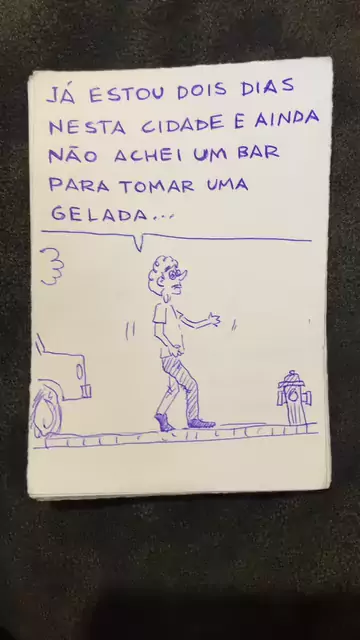 JÁ ESTOU DOIS DIAS
NESTA CIDADE E AINDA
NÃO ACHEI UM BAR
PARA TOMAR UMA
GELADA...